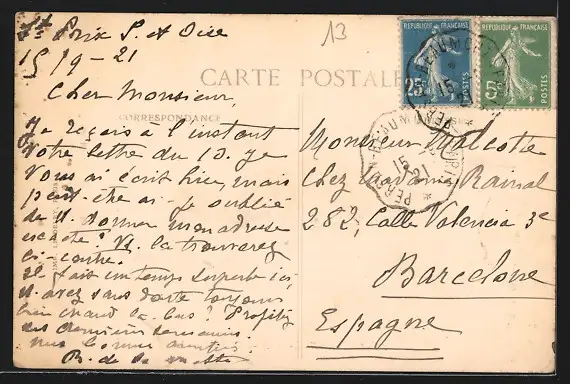 St Prix S. et Oise
15/9-21
13
RÉPUBLIQUE FRANÇAISE
25
POSTES
RÉPUBLIQUE FRANÇAISE
5c
POSTES
CARTE POSTALE
CORRESPONDANCE
Cher Monsieur,
Je reçois à l'instant
votre lettre du 13. Je
vous ai écrit hier, mais
peut-être ai-je oublié
de V. donner mon adresse
exacte? Vs. la trouverez
ci-contre.
Il fait un temps superbe ici,
V. avez sans doute toujours
bien chaud là-bas? Profitez
des dernières semaines.
mes bonnes amitiés
B. de la
Monsieur
Chez Madame Raimal
282, Calle Valencia 3e
Barcelone
Espagne